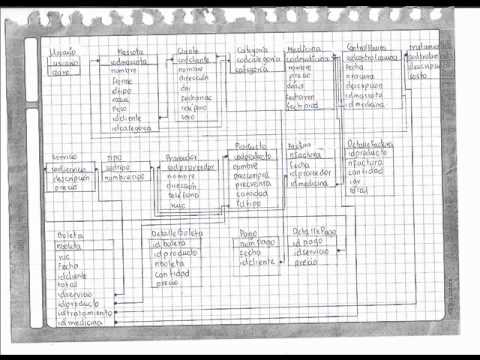 Usuario
usuario
clave
Mascota
idmascota
nombre
idtipo
raza
peso
idcliente
idcategoria
Cliente
idcliente
nombre
dirección
dni
telefono
sexo
Categoria
idcategoria
categoria
Medicina
idmedicina
nombre
precio
fechaven
ControlVacuna
idcontrolvacuna
Fecha
nvacuna
descripcion
idmascota
idmedicina
tratamiento
costo
Servicio
idservicio
descripcion
precio
tipo
idtipo
nombretipo
Proveedor
idproveedor
nombre
dirección
telefono
ruc
Producto
idproducto
nombre
preventa
cantidad
idtipo
Factura
nfactura
Fecha
idproveedor
idmedicina
DetalleFactura
idproducto
nfactura
cantidad
total
Boleta
nboleta
ruc
Fecha
idcliente
total
idservicio
idproducto
idtratamiento
idmedicina
DetalleBoleta
idboleta
idproducto
nboleta
cantidad
precio
Pago
numpago
fecha
idcliente
DetallePago
idpago
idservicio
precio